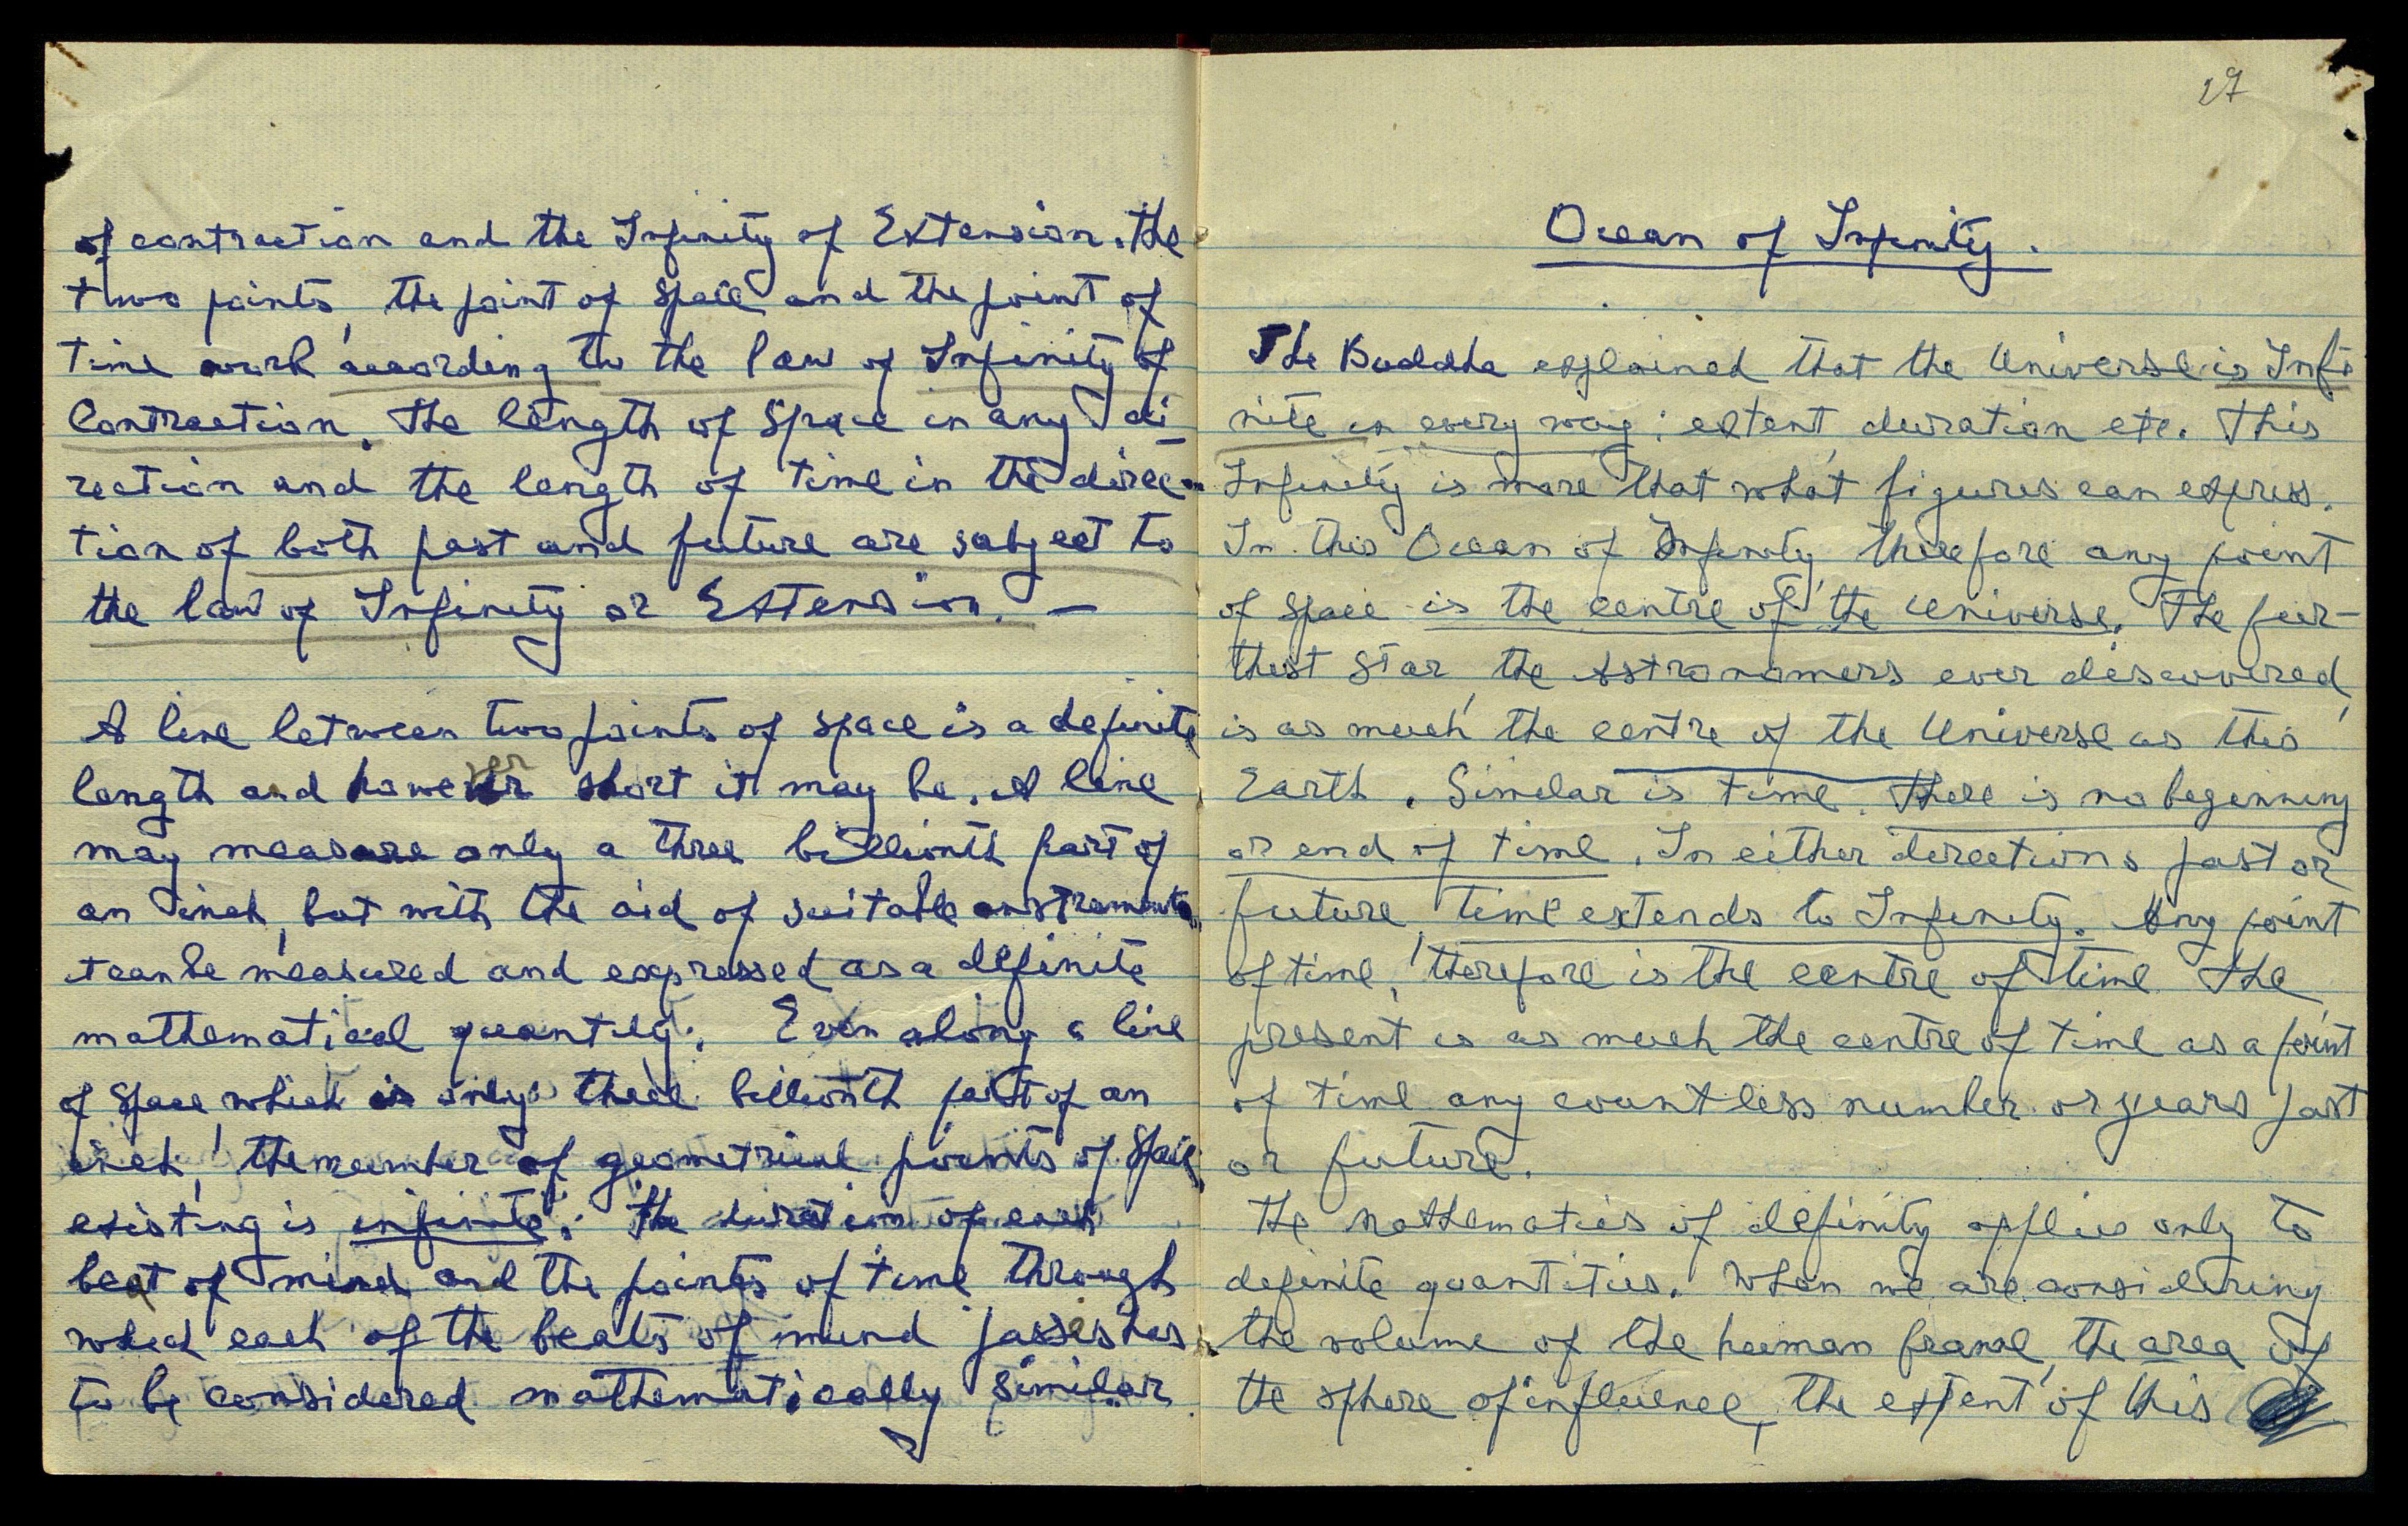 of contraction and the Infinity of Extension. The
two points, the point of space and the point of
time work according to the law of Infinity of
Contraction. The length of Space in any di-
rection and the length of time in the direc-
tion of both past and future are subject to
the law of Infinity or Extension. —
A line between two points of space is a definite
length and however short it may be. A line
may measure only a three billionth part of
an inch, but with the aid of suitable instruments
it can be measured and expressed as a definite
mathematical quantity. Even along a line
of space which is only three billionth part of an
inch, the number of geometrical points of space
existing is infinite. The duration of each
beat of mind and the points of time through
which each of the beats of mind passes has
to be considered mathematically similar
27
Ocean of Infinity.
The Buddha explained that the Universe is Infi
nite in every way: extent, duration etc. This
Infinity is more that what figures can express.
In this Ocean of Infinity, therefore any point
of space is the centre of the universe. The fur-
thest Star, the Astronomers ever discovered,
is as much the centre of the Universe as this
Earth. Similar is time. There is no beginning
or end of time. In either directions past or
future, time extends to Infinity. Any point
of time, therefore is the centre of time. The
present is as much the centre of time as a point
of time any countless number or years past
or future.
The mathematics of definity applies only to
definite quantities. When we are considering
the volume of the human frame, the area of
the sphere of influence, the extent of this